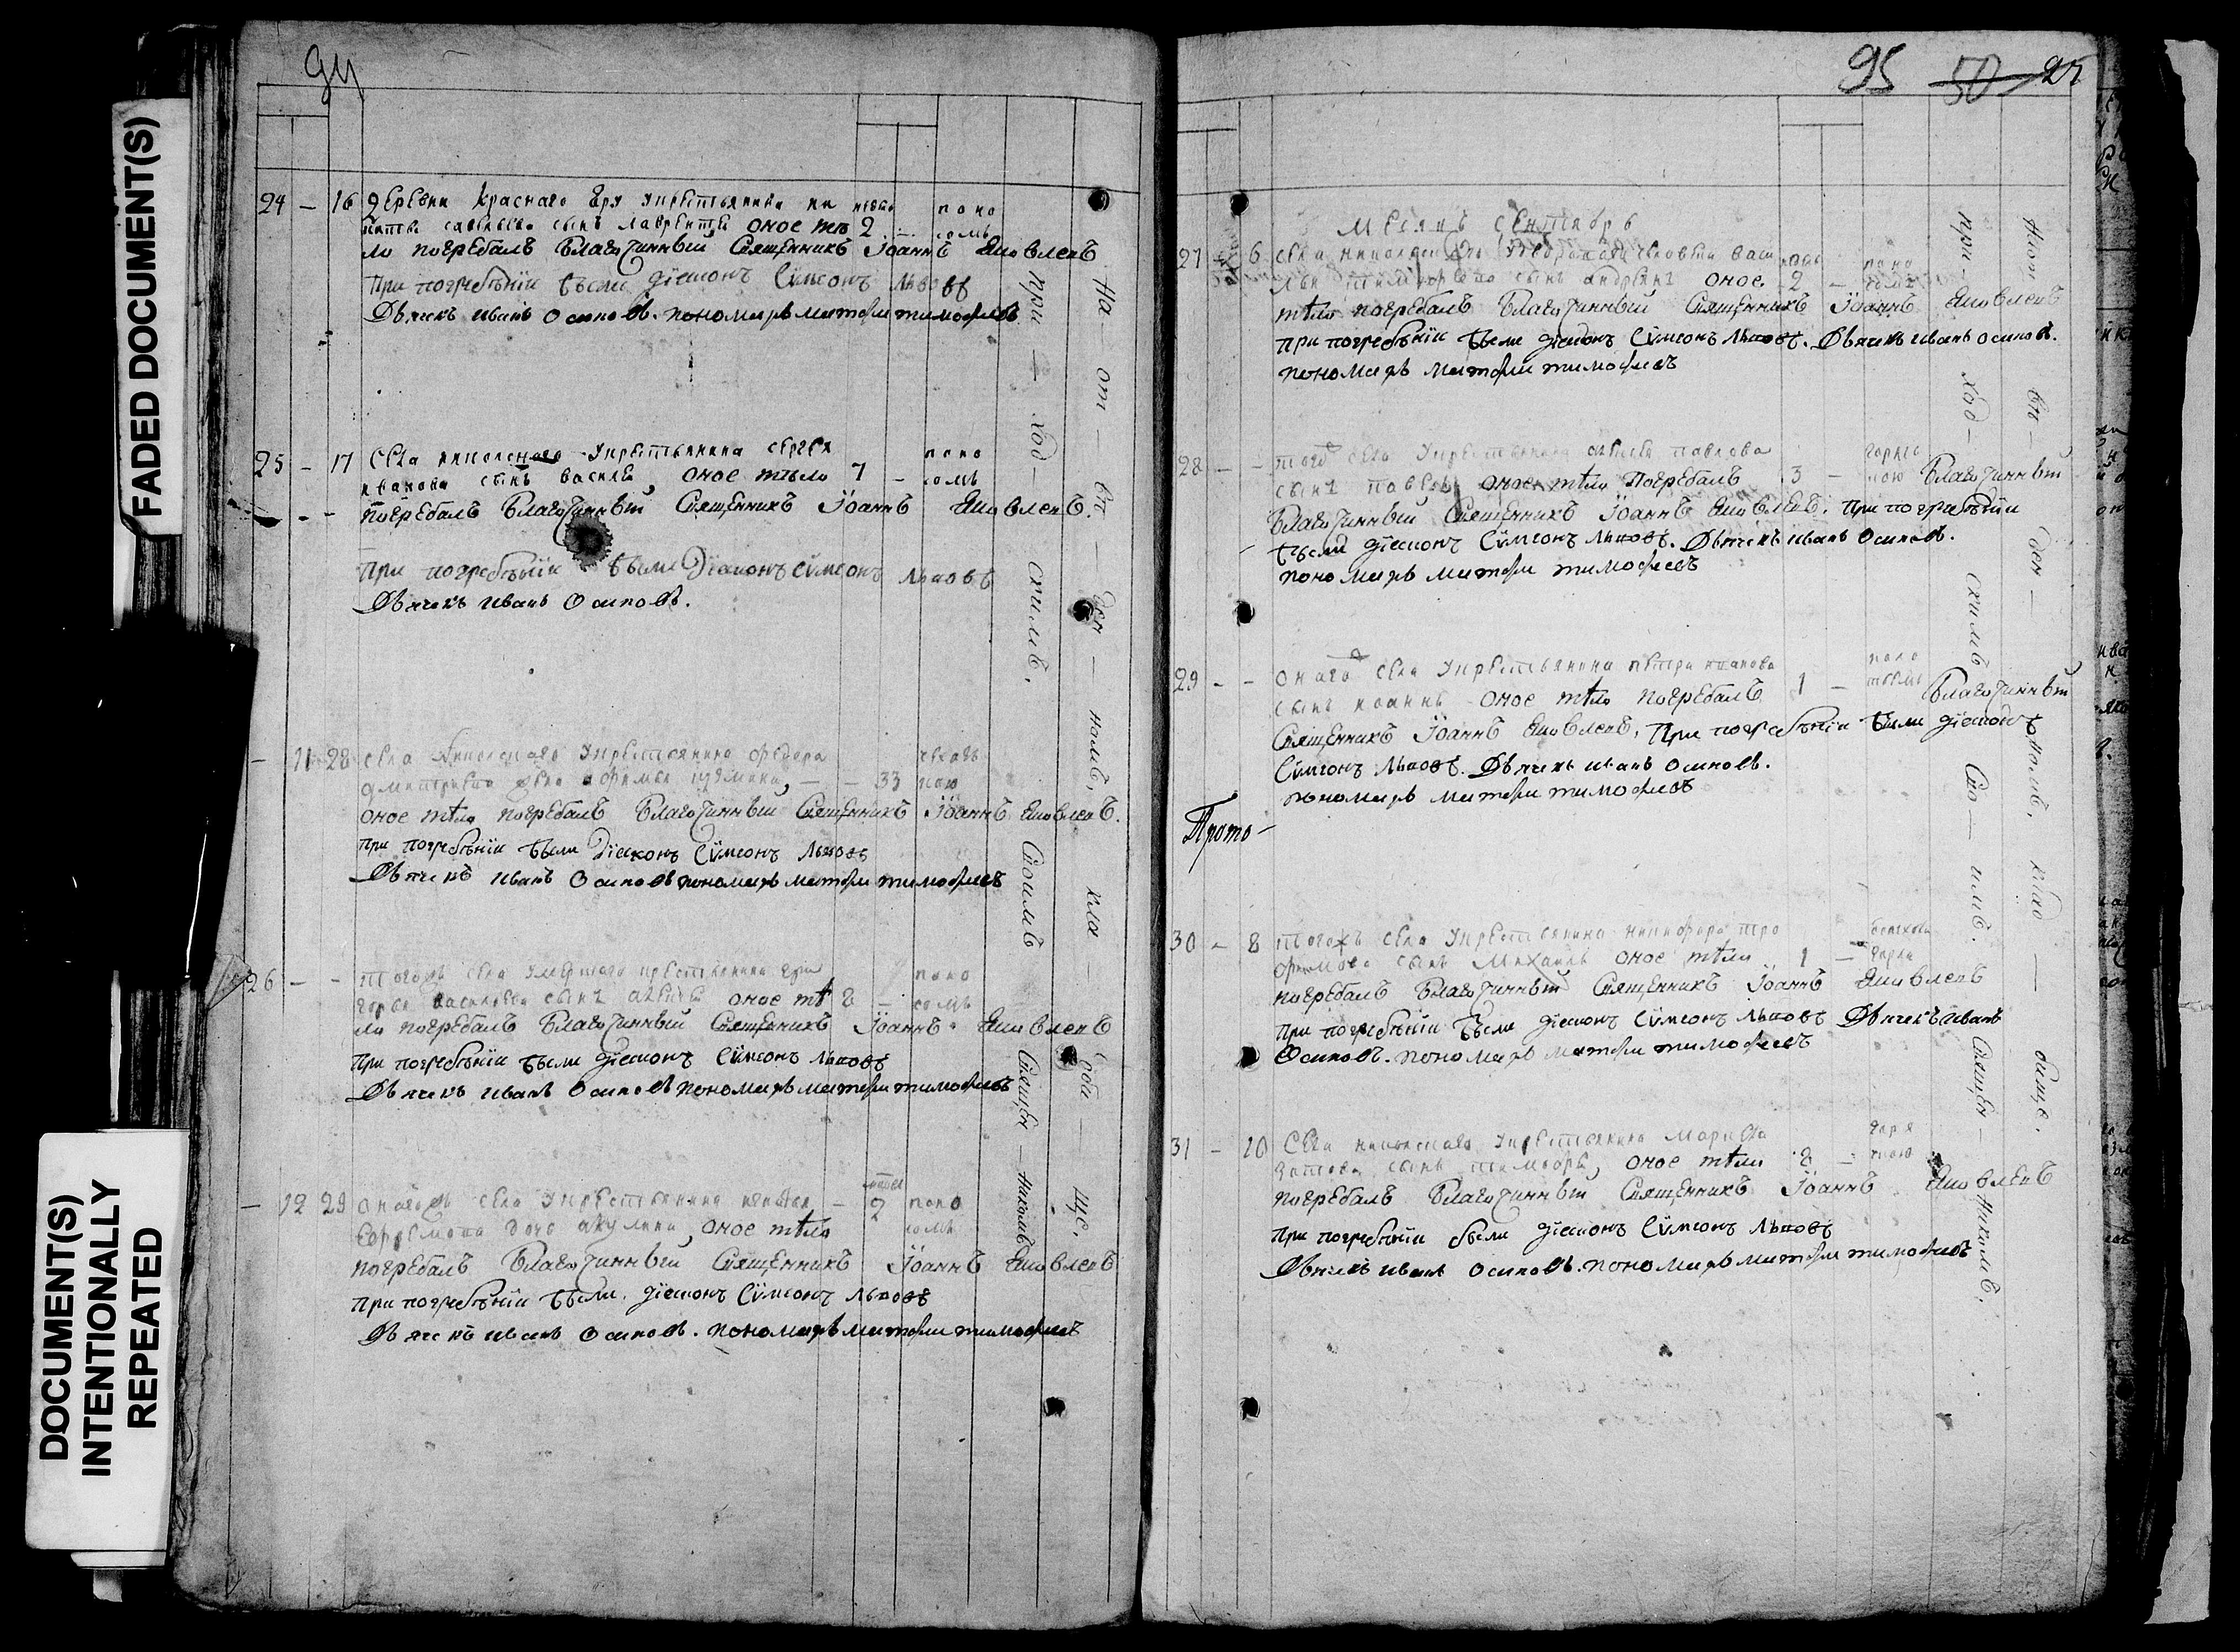 FADED DOCUMENT(S)
DOCUMENT(S)
INTENTIONALLY
REPEATED
94
24 — 16 деревни Краснаго Яру укрестьянина
сынъ лаврентеи оное тѣ 2 — поно сомъ
ло погребалъ Благочинныи Священникъ Iоаннъ Яковлевъ
При погребѣнiи были дiаконъ Сѵмеонъ Львовъ
Дьячекъ иванъ осиповъ. пономарь матфеи тимофеевъ
25 — 17 села укрестьянина сергея
иванова сынъ василеи, оное тѣло 7 — поно сомъ
погребалъ Благочинныи Священникъ Iоаннъ Яковлевъ.
При погребѣнiи были Дiаконъ Сѵмеонъ Львовъ
Дьячекъ иванъ осиповъ.
— 11 28 села укрестьянина федора
дмитриева жена афимья кузмина, — — 33
оное тѣло погребалъ Благочинныи Священникъ Iоаннъ Яковлевъ.
При погребѣнiи были Дiаконъ Сѵмеонъ Львовъ
Дьячекъ иванъ осиповъ пономарь матфеи тимофеевъ
26 — — тогожъ села умершаго крестьянина гри
горья василева сынъ оное тѣ 8 — поно сомъ
ло погребалъ Благочинныи Священникъ Iоаннъ Яковлевъ
При погребѣнiи были дiаконъ Сѵмеонъ Львовъ
Дьячекъ иванъ осиповъ пономарь матфеи тимофеевъ
— 12 29 онагожъ села укрестьянина — 2 поно
дочь акулина, оное тѣло сомъ
погребалъ Благочинныи Священникъ Iоаннъ Яковлевъ
При погребѣнiи были. дiаконъ Сѵмеонъ Львовъ
Дьячекъ иванъ осиповъ. пономарь матфеи тимофеевъ
При — ход — скимъ. Своимъ Священ — никомъ
На от — вѣ — ден — номъ, кла — дби — ще.
95 50 27
Месяцъ сентябрь
27 — 6 села васи
сынъ андреянъ оное 2 — поно сомъ
тѣло погребалъ Благочинныи Священникъ Iоаннъ Яковлевъ
При погребѣнiи были дiаконъ Сѵмеонъ Львовъ. Дьячекъ иванъ осиповъ.
пономарь матфеи тимофеевъ
28 — — того села укрестьянина павлова
сынъ павелъ оное тѣло погребалъ 3 — Благочинныи
Благочинныи Священникъ Iоаннъ Яковлевъ. При погребѣнiи
были дiаконъ Сѵмеонъ Львовъ. Дьячекъ иванъ осиповъ.
пономарь матфеи тимофеевъ
29 — — онаго села укрестьянина петра иванова
сынъ иоаннъ оное тѣло погребалъ 1 — Благочинныи
Священникъ Iоаннъ Яковлевъ. При погребѣнiи были дiаконъ
Сѵмеонъ Львовъ. Дьячекъ иванъ осиповъ.
пономарь матфеи тимофеевъ
Прото —
30 — 8 тогожъ села укрестьянина никифора тро
фимова сынъ Михаилъ оное тѣло 1 —
погребалъ Благочинныи Священникъ Iоаннъ Яковлевъ
При погребѣнiи были дiаконъ Сѵмеонъ Львовъ Дьячекъ иванъ
Осиповъ. пономарь матфеи тимофеевъ
31 — 10 Села укрестьянина
сынъ оное тѣло 8 —
погребалъ Благочинныи Священникъ Iоаннъ Яковлевъ
При погребѣнiи были дiаконъ Сѵмеонъ Львовъ
Дьячекъ иванъ осиповъ. пономарь матфеи тимофеевъ
при — ход — скимъ Сво — имъ. Священ — никомъ.
На от вѣ ден — номъ, клад — бище.